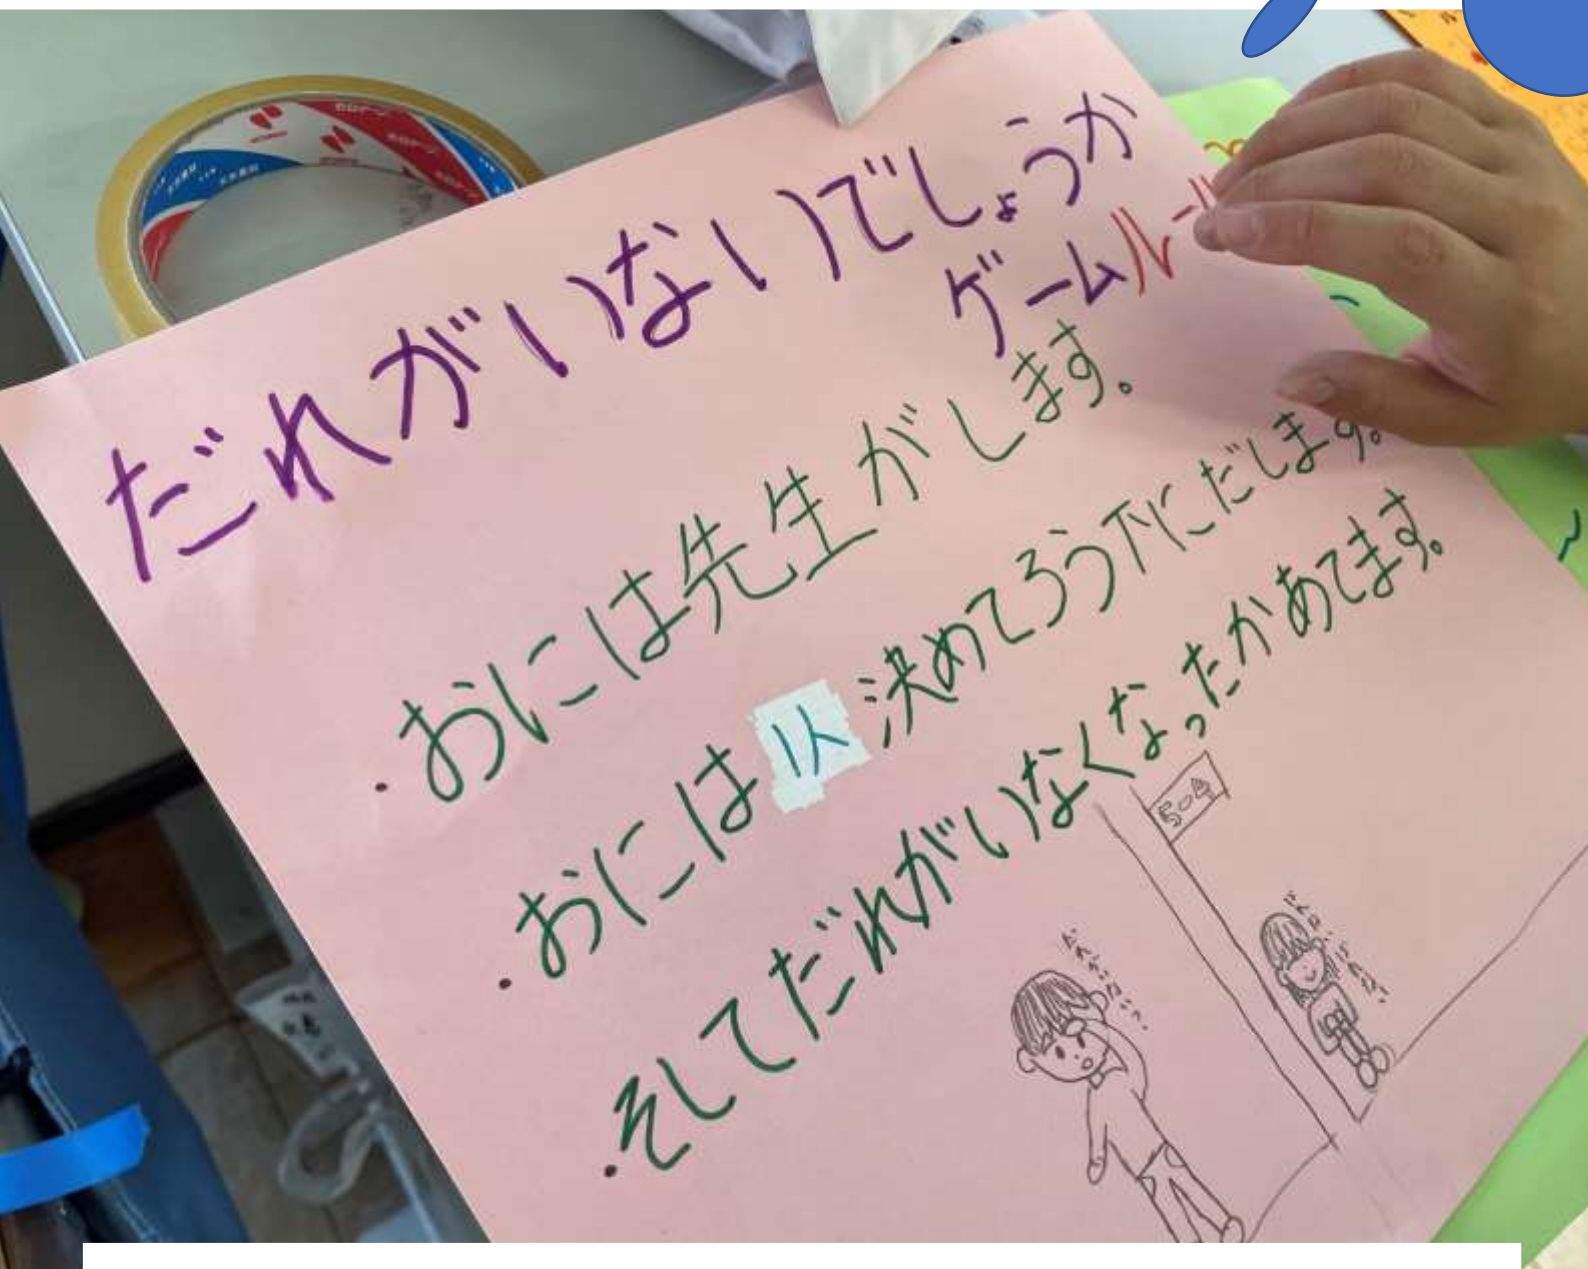 だれがいないでしょうか
ゲームルール
・おには先生がします。
・おには1人決めてろう下にだします。
・そしてだれがいなくなったかあてます。
504